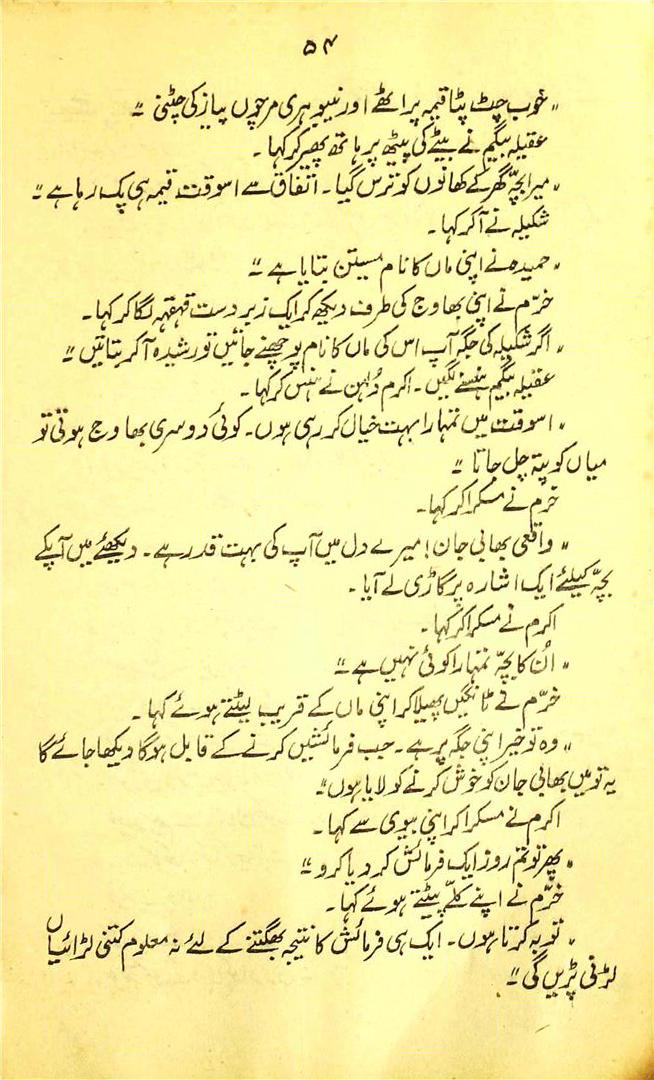 ۵۴
"خوب چٹ پٹا قیمہ پراٹھے اور نیبو ہری مرچوں پیاز کی چٹنی"
عقیلہ بیگم نے بیٹے کی پیٹھ پر ہاتھ پھیر کر کہا۔
"میرا بچّہ گھر کے کھانوں کو ترس گیا۔ اتفاق سے اسوقت قیمہ ہی پک رہا ہے"
شکیلہ نے آ کر کہا۔
"حمیدہ نے اپنی ماں کا نام مسیتن بتایا ہے"
خرّم نے اپنی بھاوج کی طرف دیکھ کر ایک زبردست قہقہہ لگا کر کہا۔
"اگر شکیلہ کی جگہ آپ اس کی ماں کا نام پوچھنے جاتیں تو رشیدہ آ کر بتاتیں"
عقیلہ بیگم ہنسنے لگیں۔ اکرم دُلہن نے ہنس کر کہا۔
"اسوقت میں تمہارا بہت خیال کر رہی ہوں۔ کوئی دوسری بھاوج ہوتی تو
میاں کو پتہ چل جاتا"
خرم نے مسکرا کر کہا۔
"واقعی بھابی جان! میرے دل میں آپ کی بہت قدر ہے۔ دیکھئے میں آپکے
بچّہ کیلئے ایک اشارہ پر گاڑی لے آیا۔
اکرم نے مسکرا کر کہا۔
"اُن کا بچّہ تمہارا کوئی نہیں ہے"
خرّم نے ٹانگیں پھیلا کر اپنی ماں کے قریب لیٹتے ہوئے کہا۔
"وہ تو خیر اپنی جگہ پر ہے۔ جب فرمائشیں کرنے کے قابل ہوگا دیکھا جائے گا
یہ تو میں بھابی جان کو خوش کرنے کو لایا ہوں"
اکرم نے مسکرا کر اپنی بیوی سے کہا۔
"پھر تو تم روز ایک فرمائش کر دیا کرو"
خرّم نے اپنے کلّے پیٹتے ہوئے کہا۔
"توبہ کرتا ہوں۔ ایک ہی فرمائش کا نتیجہ بھگتنے کے لئے نہ معلوم کتنی لڑائیاں
لڑنی پڑیں گی"